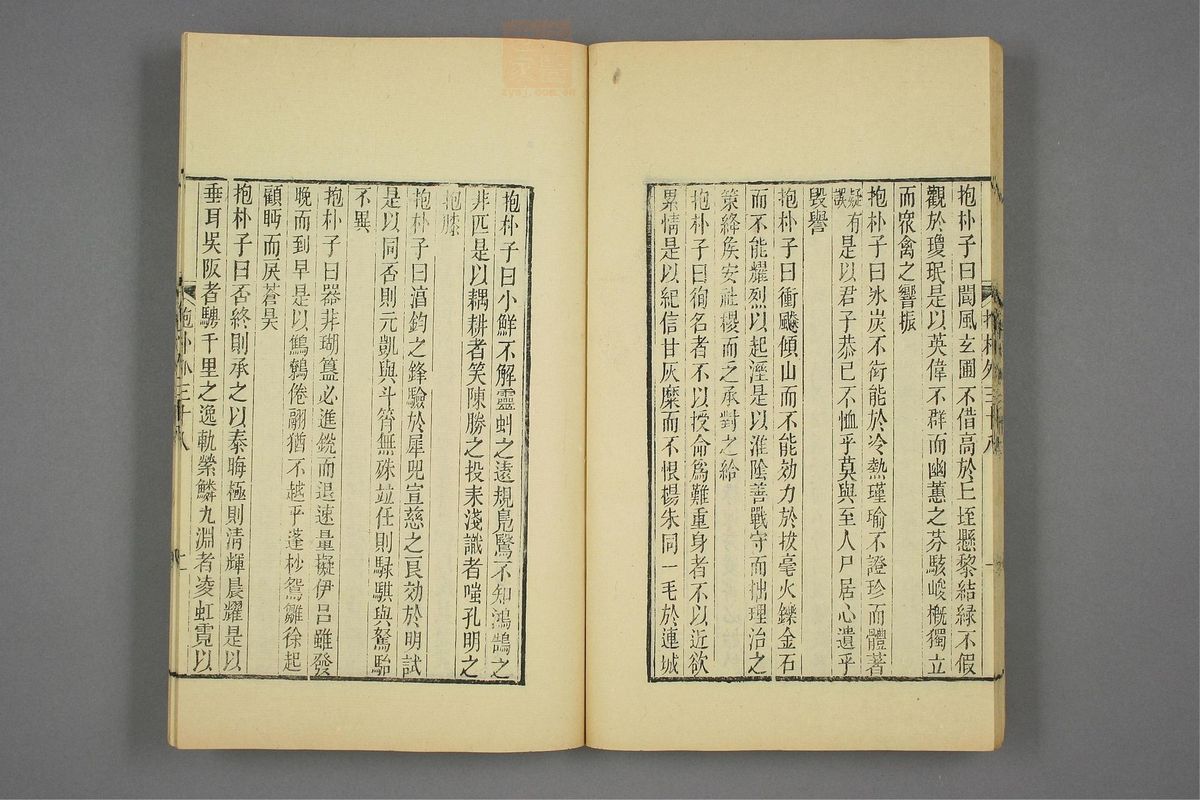 抱朴子曰閬風玄圃不借高於丘垤懸黎結緑不假
觀於瓊珉是以英偉不群而幽蕙之芬駭峻概獨立
而眾禽之響振
抱朴子曰氷炭不衒能於冷熱瑾瑜不證珍而體著
疑有
誤
是以君子恭已不恤乎莫與至人尸居心遺乎
毀譽
抱朴子曰衝飈傾山而不能効力於拔毫火鑠金石
而不能耀烈以起溼是以淮陰善戰守而拙理治之
策絳矦安社稷而乏承對之給
抱朴子曰徇名者不以授命爲難重身者不以近欲
累情是以紀信甘灰糜而不恨楊朱同一毛於連城
抱朴外三十八
抱朴子曰小鮮不解靈虯之遠規鳧鷖不知鴻鵠之
非匹是以耦耕者笑陳勝之投耒淺識者嗤孔明之
抱膝
抱朴子曰湻鈞之鋒驗於犀兕宣慈之良効於明試
是以同否則元凱與斗筲無殊竝任則騄騏與駑駘
不異
抱朴子曰器非瑚簋必進銳而退速量擬伊呂雖發
晚而到早是以鷦鷯倦翮猶不越乎蓬杪鴛雛徐起
顧眄而戾蒼昊
抱朴子曰否終則承之以泰晦極則清輝晨耀是以
垂耳吳阪者騁千里之逸軌縈鱗九淵者凌虹霓以
抱朴外三十八